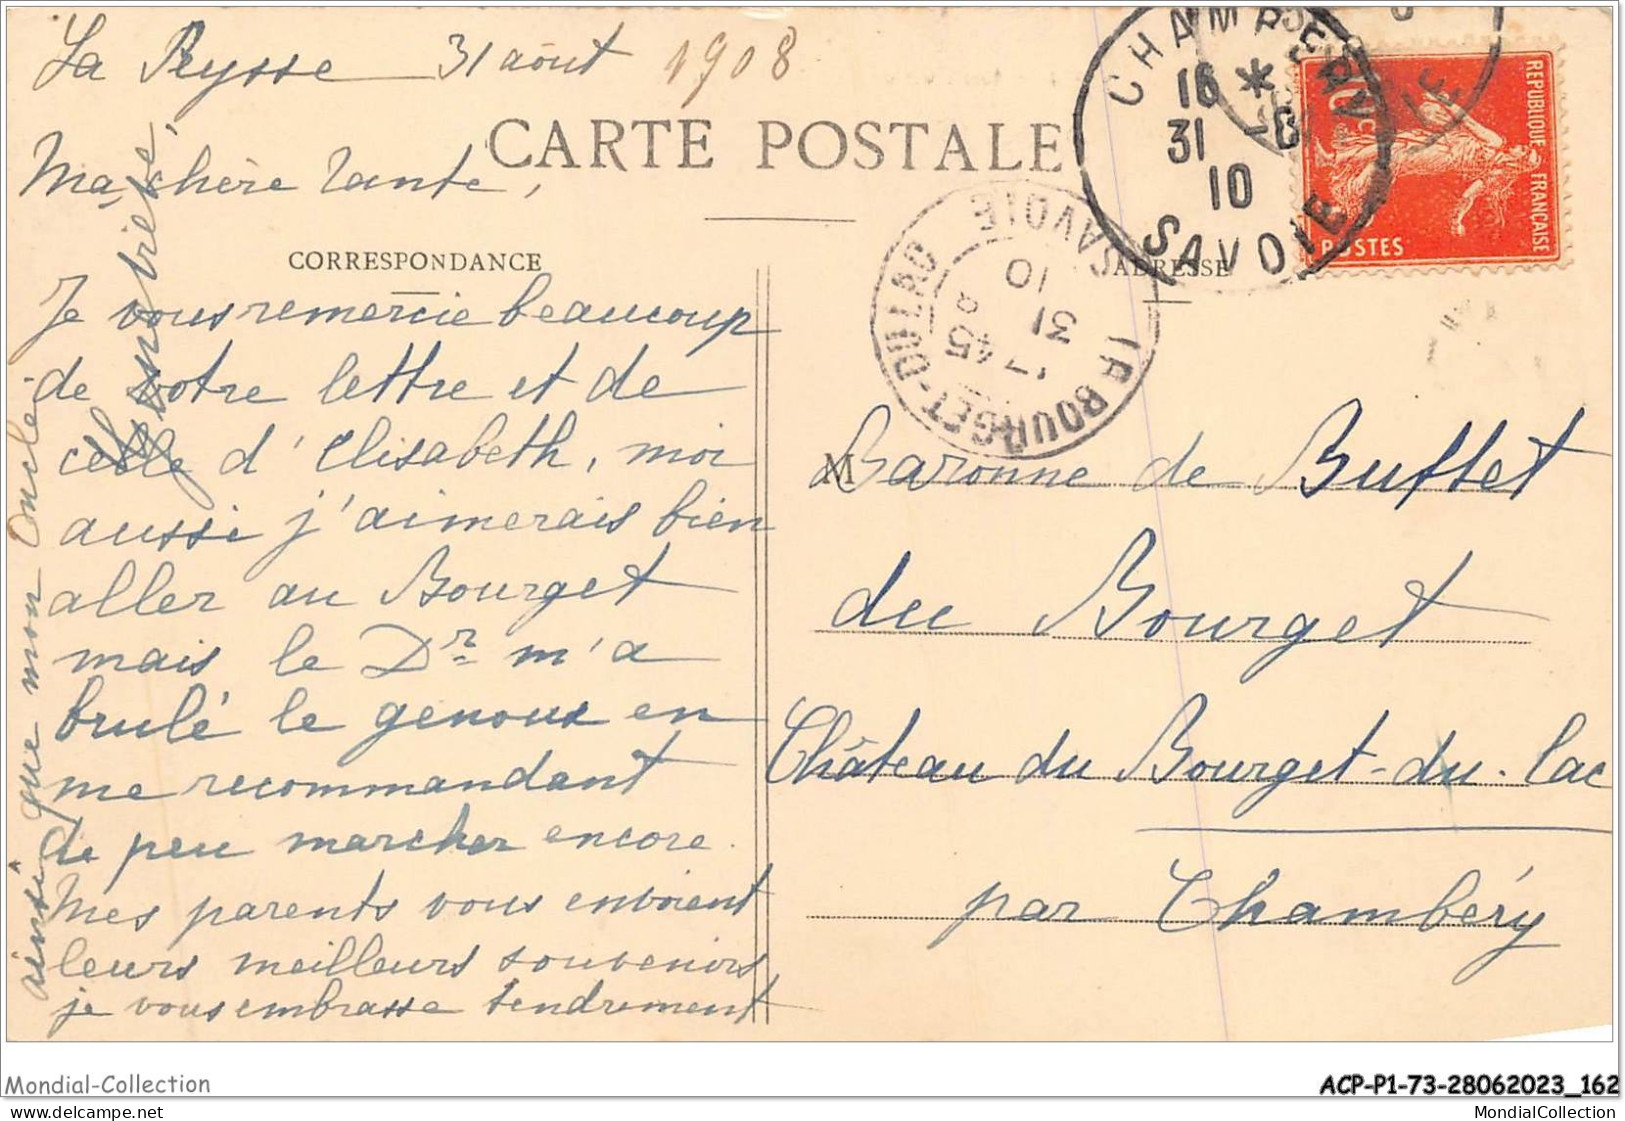 La Leysse 31 août 1908
CARTE POSTALE
Ma chère Tante,
CORRESPONDANCE
Je vous remercie beaucoup
de votre lettre et de
celle d'Elisabeth, moi
aussi j'aimerais bien
aller au Bourget
mais le Dr m'a
brulé le genoux en
me recommandant
de peu marcher encore.
Mes parents vous envoient
leurs meilleurs souvenirs
je vous embrasse tendrement
ainsi que mon Oncle
ADRESSE
M
Baronne de Buttet
du Bourget
Château du Bourget-du-Lac
par Chambéry
CHAMBERY
16 *
31 -8
10
SAVOIE
LE BOURGET-DU-LAC
17 45
31 8
10
SAVOIE
REPUBLIQUE FRANÇAISE
10c
POSTES
Mondial-Collection
ACP-P1-73-28062023_162
www.delcampe.net
MondialCollection